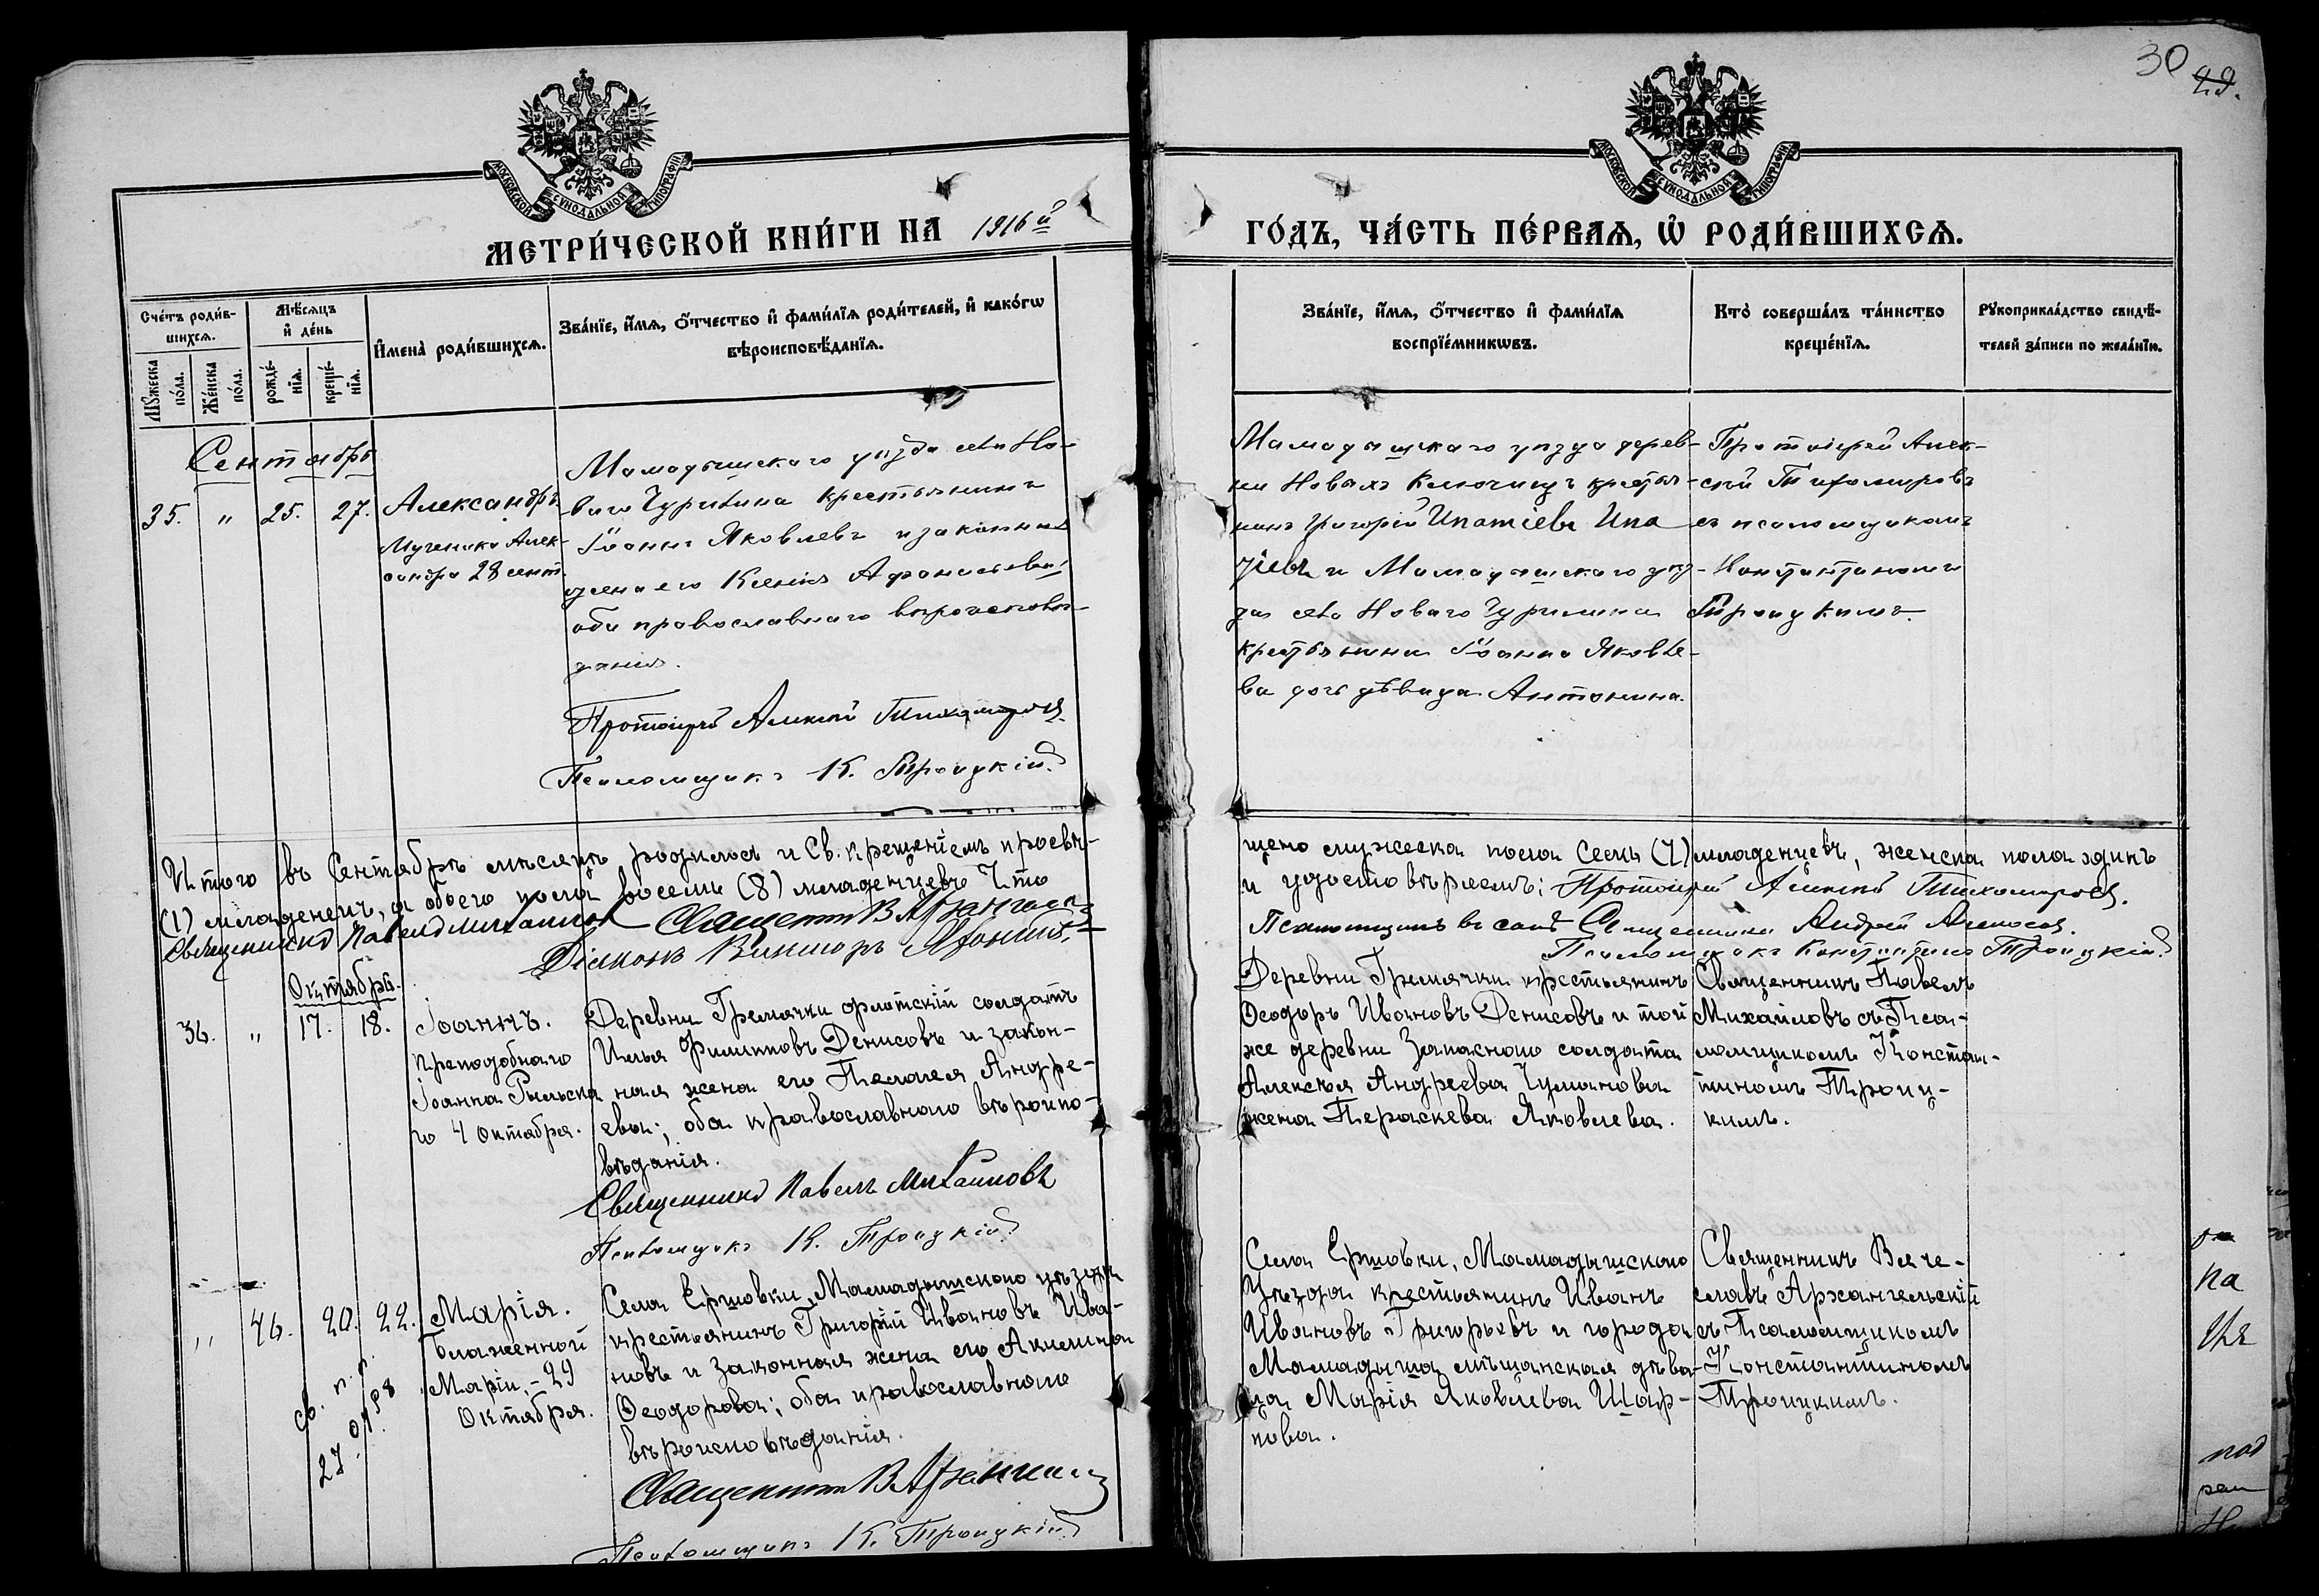 30
29.
МОСКОВСКОЙ СѴНОДАЛЬНОЙ ТИПОГРАФИИ
МОСКОВСКОЙ СѴНОДАЛЬНОЙ ТИПОГРАФИИ
МЕТРИ́ЧЕСКОЙ КНИ́ГИ НА 1916й
ГО́ДЪ, ЧА́СТЬ ПЕ́РВАѦ, Ѡ҆ РОДИ́ВШИХСѦ.
Сче́тъ роди́в-
шихсѧ.
Мꙋ́жеска по́ла.
Же́нска по́ла.
Мѣ́сѧцъ и҆ де́нь
рожде́-
нїѧ.
креще́-
нїѧ.
И҆мена̀ роди́вшихсѧ.
Зва́нїе, и҆́мѧ, ѻ҆́тчество и҆ фами́лїѧ роди́телей, и҆ како́гѡ
вѣроисповѣ́данїѧ.
Зва́нїе, и҆́мѧ, ѻ҆́тчество и҆ фами́лїѧ
воспрїе́мникѡвъ.
Кто̀ соверша́лъ та́инство
креще́нїѧ.
Рꙋкоприкла́дство свидѣ́-
телей за́писи по жела́нїю.
Сентябрь
35. " 25. 27.
Александръ
Мученика Алек-
сандра 28 сент.
Мамадышскаго уѣзда села Но-
ваго Чурилина крестьянинъ
Іоаннъ Яковлевъ и законная
жена его Ксенія Афанасьева,
оба православнаго вѣроисповѣ-
данія.
Протоіерей Алексій Тихомировъ
Псаломщикъ К. Троицкій
Мамадышскаго уѣзда дерев-
ни Новыхъ Ключищъ крестья-
нинъ Григорій Ипатіевъ
и Мамадышскаго уѣз-
да села Новаго Чурилина
крестьянина Іоанна Яковле-
ва дочь дѣвица Антонина.
Протоіерей Алек-
сій Тихомировъ
съ псаломщикомъ
Константиномъ
Троицкимъ.
Итого въ Сентябрѣ мѣсяцѣ родилось и Св. крещеніемъ просвѣ-
щено мужеска пола семь (7) младенцевъ, женска пола одинъ
(1) младенецъ, а обоего пола восемь (8) младенцевъ Что
и удостовѣряемъ: Протоіерей Алексій Тихомировъ.
Священникъ Павелъ Михайловъ Священникъ В Архангельск
Псаломщикъ въ санѣ Священника Андрей
Діаконъ Викторъ
Псаломщикъ Константинъ Троицкій
Октябрь.
36. " 17. 18.
Іоаннъ.
Преподобнаго
Іоанна Рыльска
го 4 октября.
Деревни Гремячки флотскій солдатъ
Илья Филипповъ Денисовъ и закон-
ная жена его Пелагея Андре-
ева; оба православнаго вѣроиспо-
вѣданія.
Священникъ Павелъ Михайловъ
Псаломщикъ К. Троицкій
Деревни Гремячки крестьянинъ
Ѳеодоръ Ивановъ Денисовъ и той
же деревни запаснаго солдата
Алексѣя Андреева Чулкова
жена Параскева Яковлева.
Священникъ Павелъ
Михайловъ съ Псал-
ломщикомъ Констан-
тиномъ Троиц-
кимъ.
" 46. 20. 22.
Марія.
Блаженной
Маріи, - 29
Октября.
Села Ершовки, Мамадышскаго уѣзда
крестьянинъ Григорій Ивановъ Ива-
новъ и законная жена его Акилина
Ѳеодорова; оба православнаго
вѣроисповѣданія.
Священникъ В Архангельск
Псаломщикъ К. Троицкій
Села Ершовки, Мамадышскаго
Уѣзда крестьянинъ Иванъ
Ивановъ Григорьевъ и города
Мамадыша мѣщанская дѣви-
ца Марія Яковлева Шар-
пова.
Священникъ Вяче-
славъ Архангельскій
съ Псаломщикомъ
Константиномъ
Троицкимъ.
на
под